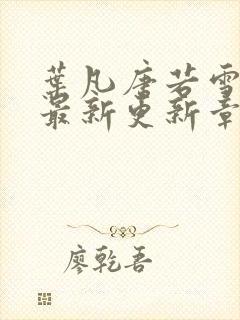 葉凡唐若雪
最新更新章
廖乾吾